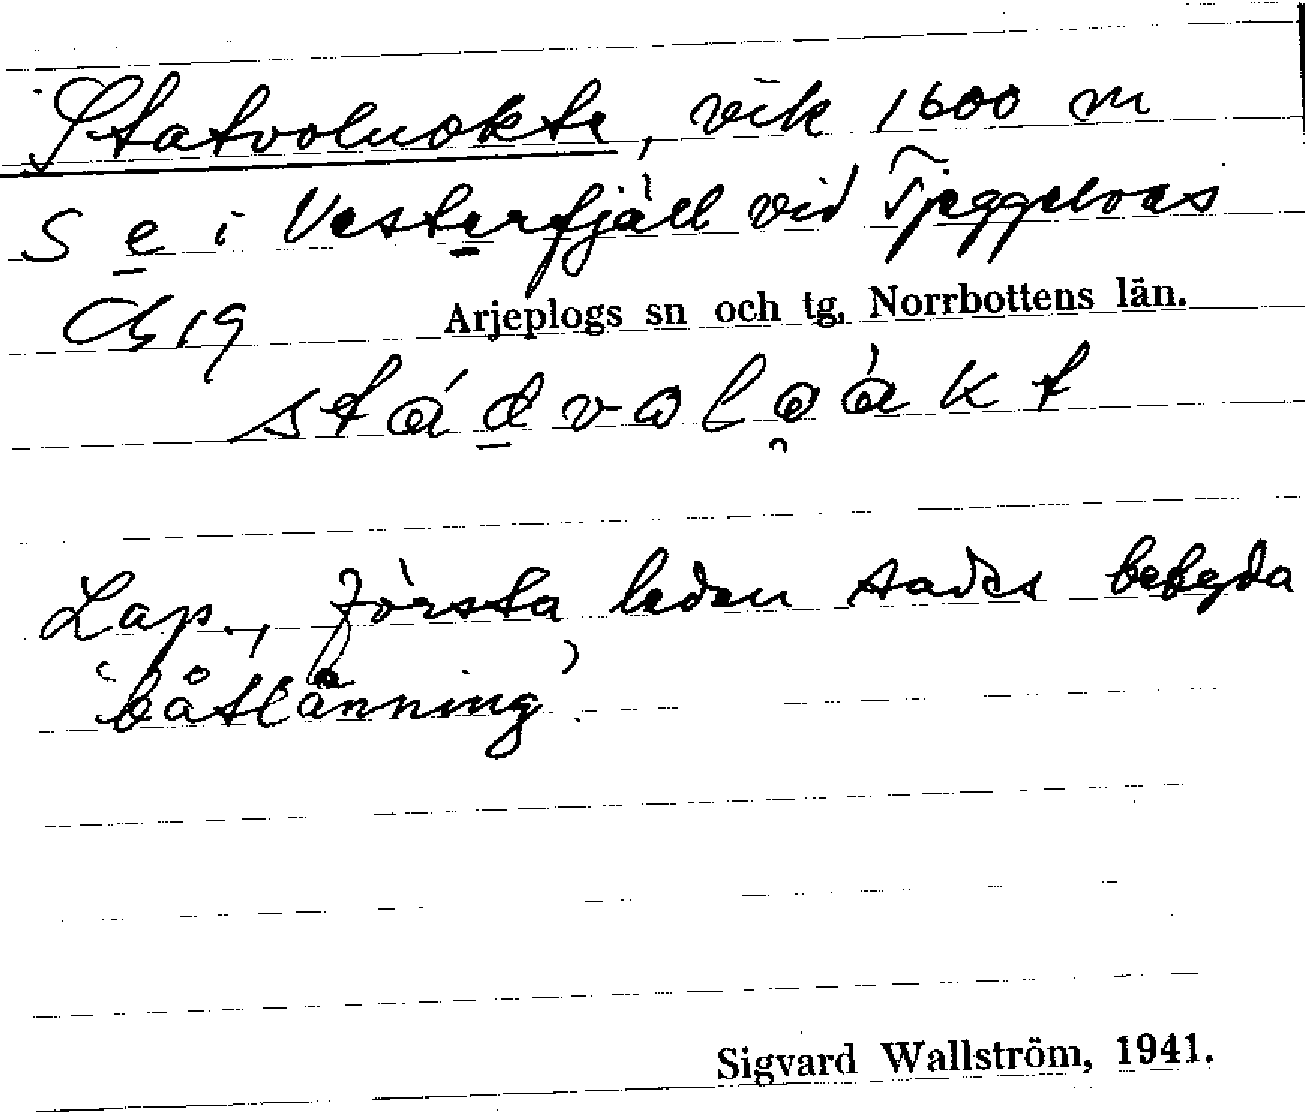 Statvoluokte, vik 1600 m
S e i Vesterfjäll vid Tjeggelvas
Arjeplogs sn och tg, Norrbottens län.
Lap., första leden sades betyda
'båtlänning'.
Sigvard Wallström, 1941.